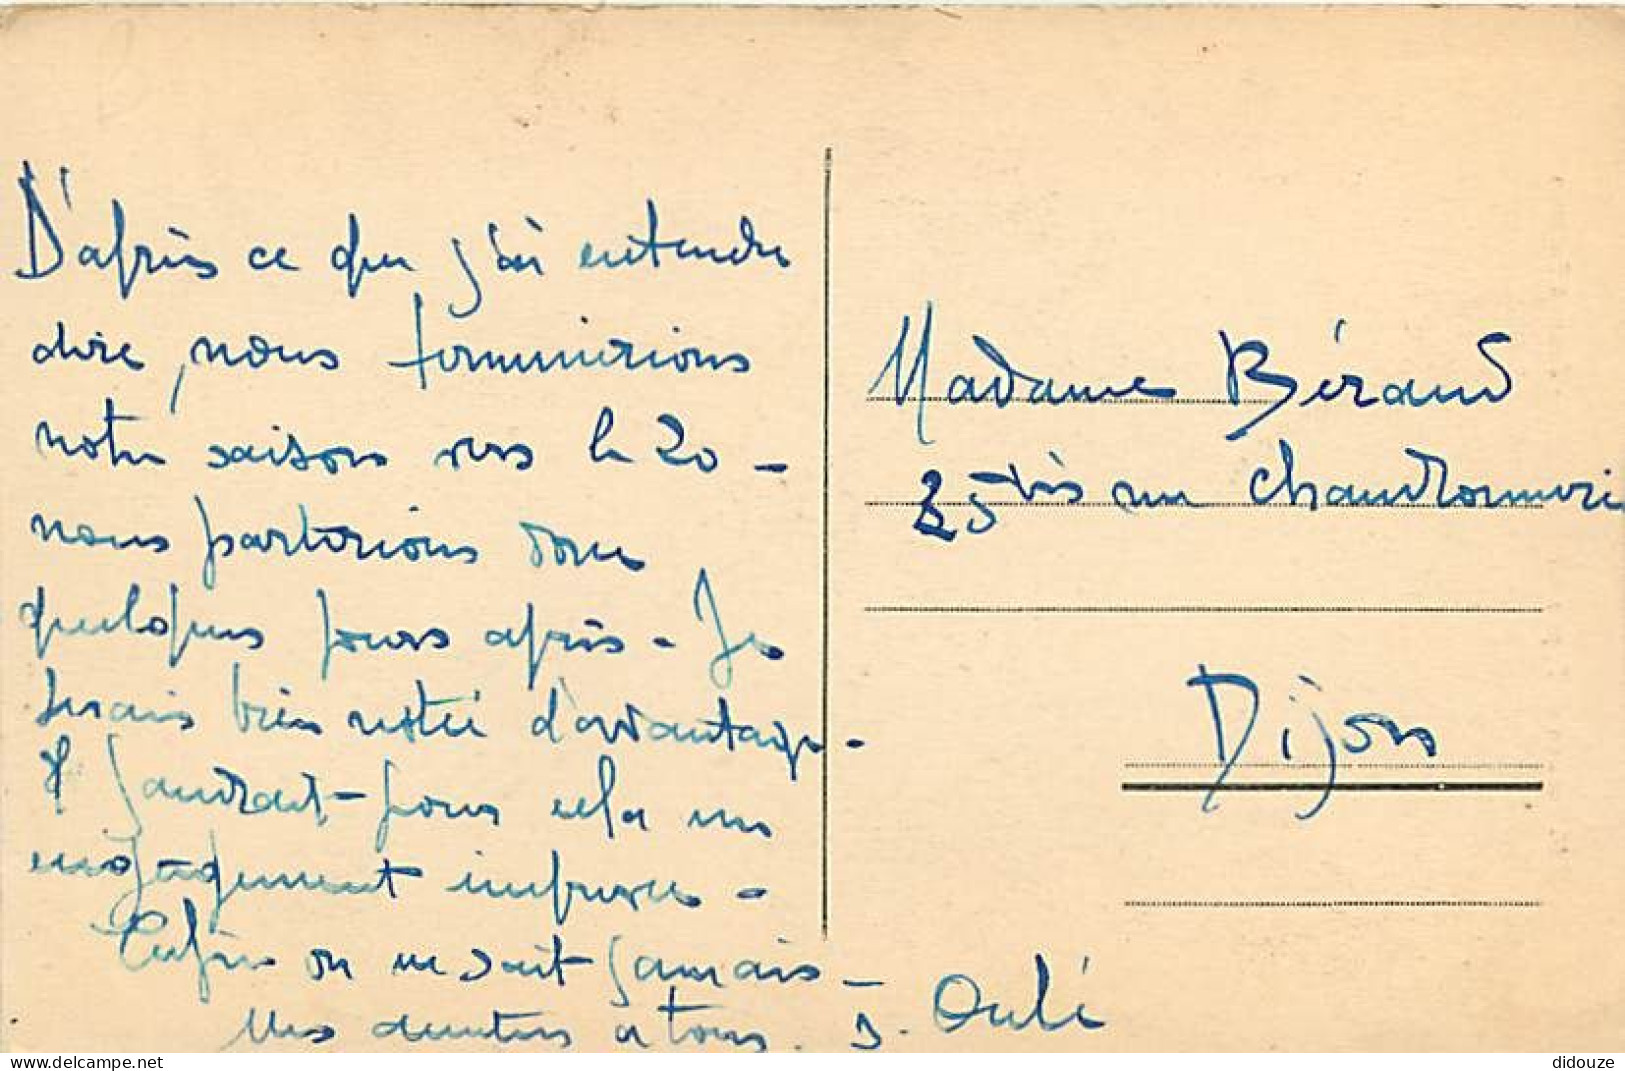 D'après ce que j'ai entendu
dire, nous terminerions
notre saison vers le 20 -
nous partirions donc
quelques jours après - Je
serais bien resté d'avantage -
Il faudrait pour cela un
engagement imprévu -
Enfin on ne sait jamais -
à tous. J. Oulé
Madame Béraud
25 bis rue Chaudronnerie
Dijon
https://www.delcampe.net
didouze